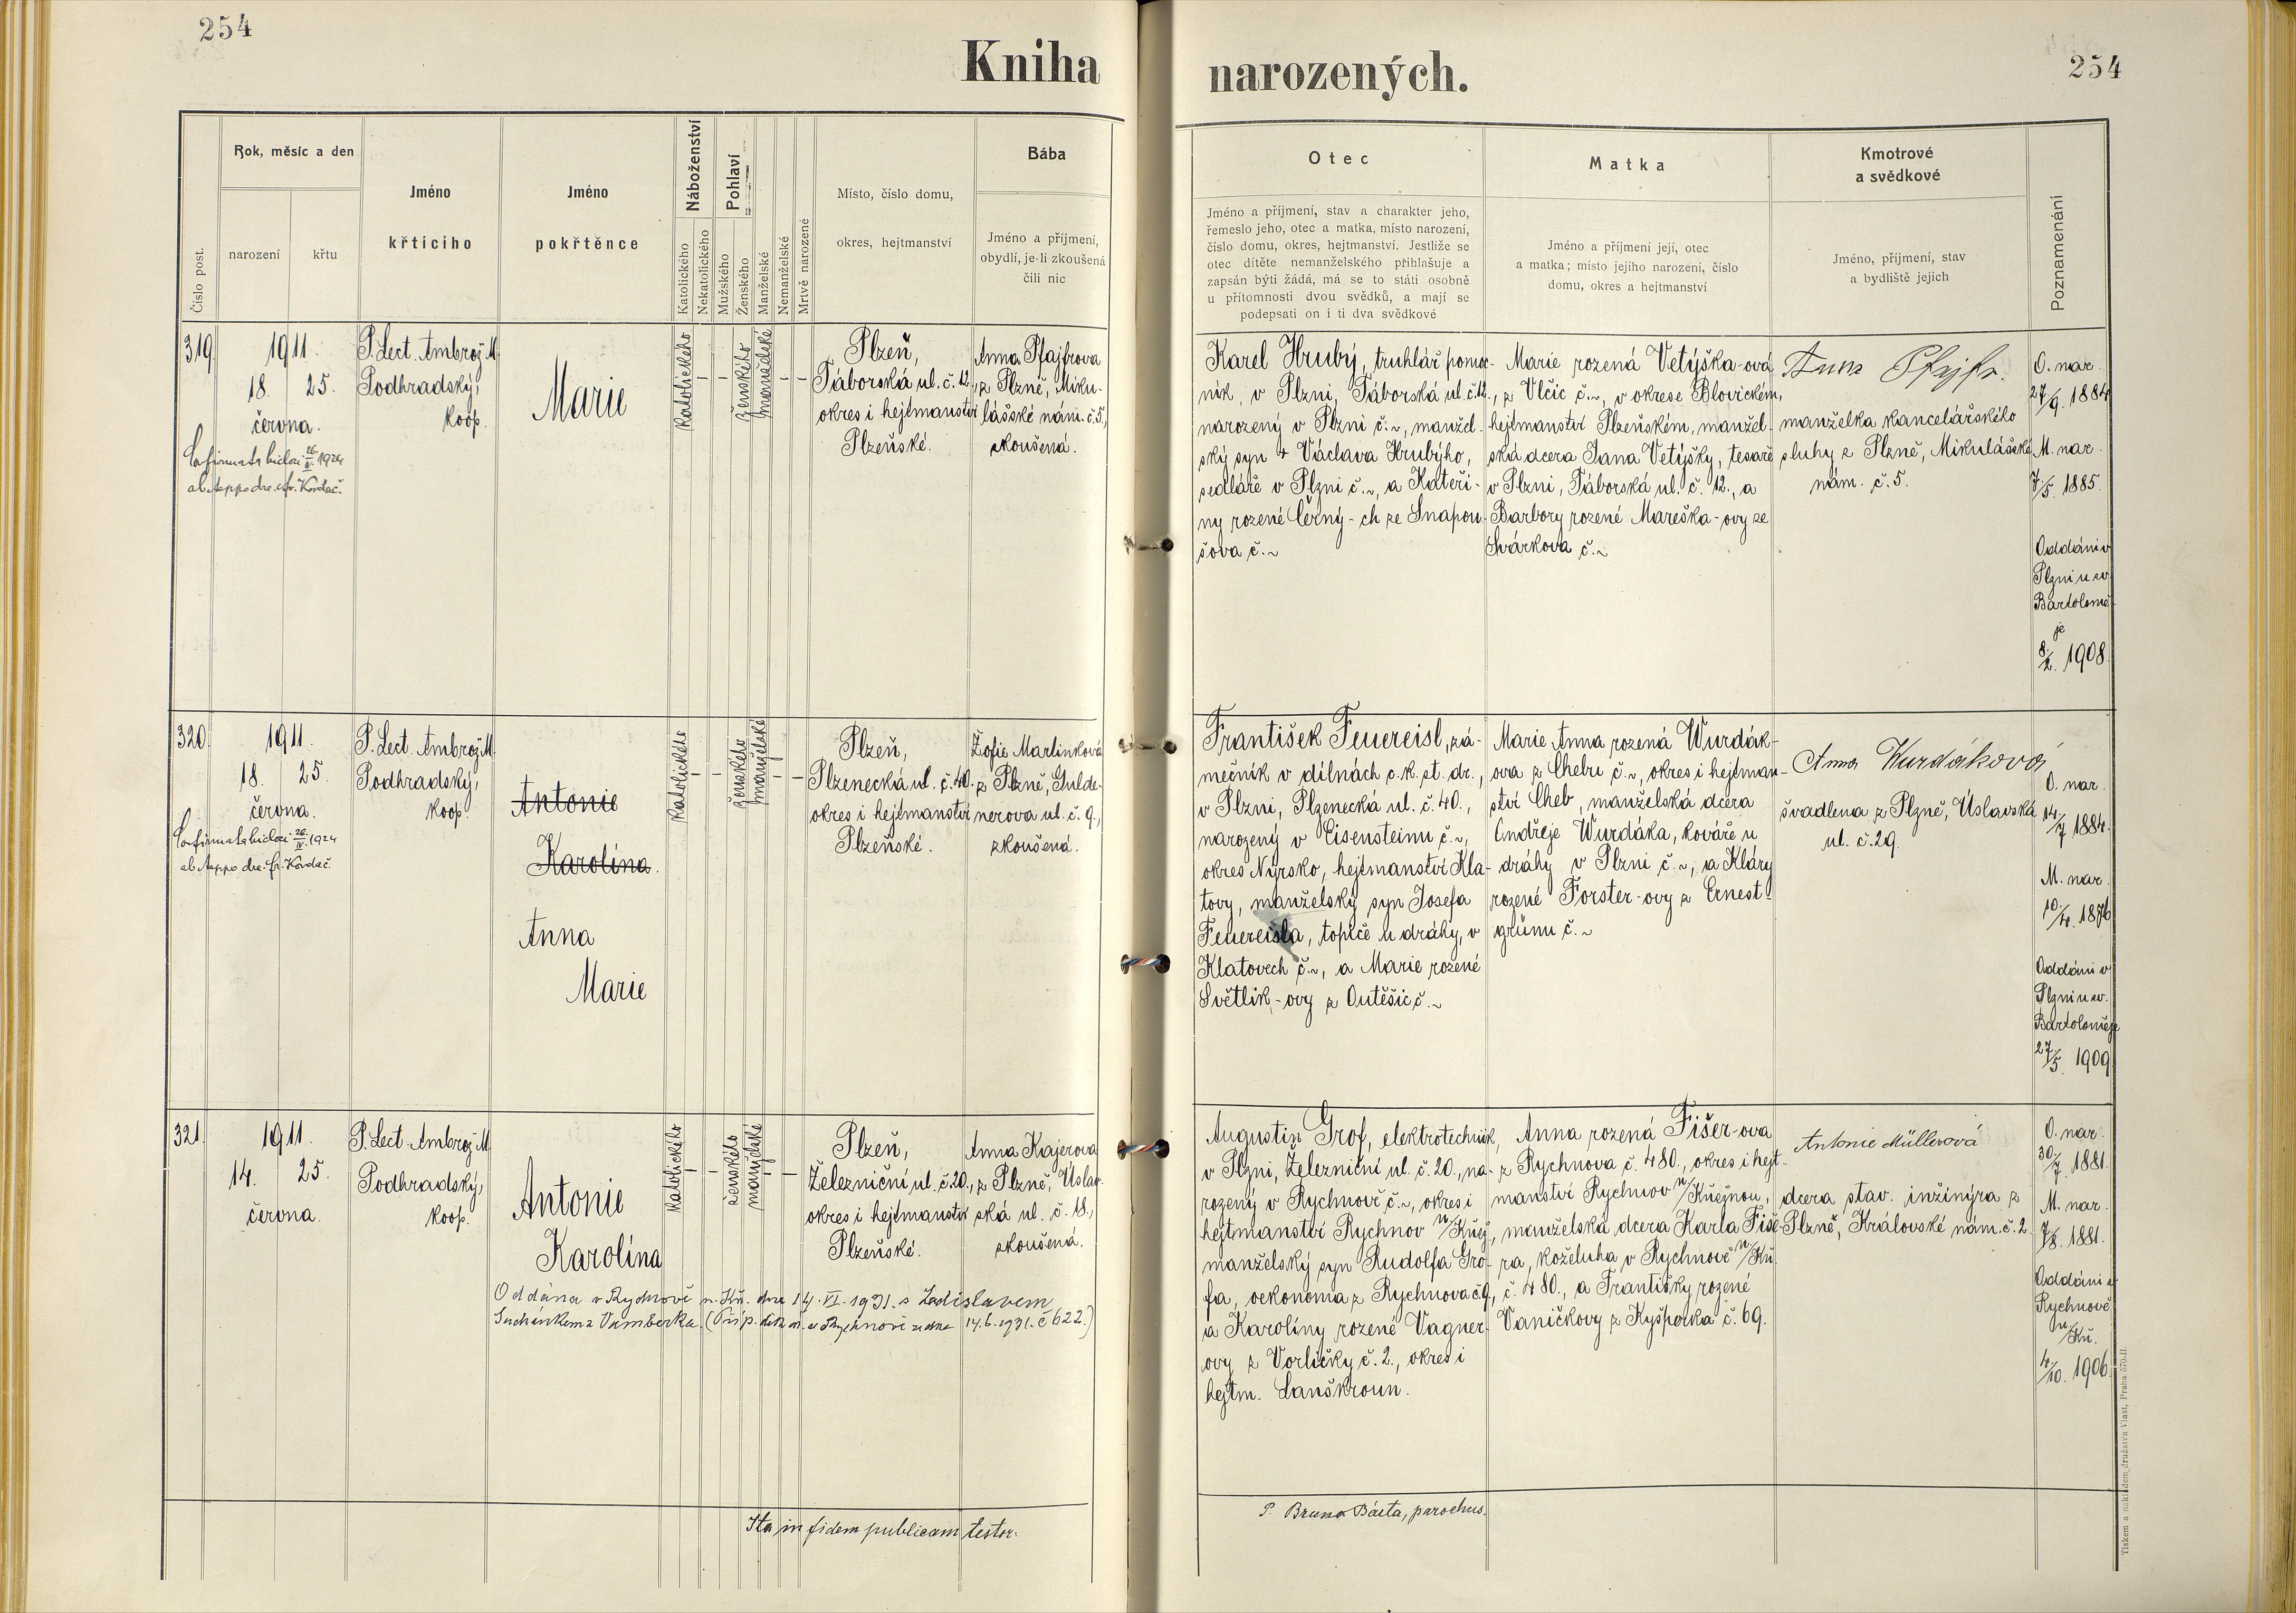 254
Kniha
narozených.
254
Číslo post.
Rok, měsíc a den
narození
křtu
Jméno
křticího
Jméno
pokřtěnce
Náboženství
Katolického
Nekatolického
Pohlaví
Mužského
Ženského
Manželské
Nemanželské
Mrtvě narozené
Místo, číslo domu,
okres, hejtmanství
Bába
Jméno a příjmení,
obydlí, je-li zkoušená
čili nic
Otec
Jméno a příjmení, stav a charakter jeho,
řemeslo jeho, otec a matka, místo narození,
číslo domu, okres, hejtmanství. Jestliže se
otec dítěte nemanželského přihlašuje a
zapsán býti žádá, má se to státi osobně
u přítomnosti dvou svědků, a mají se
podepsati on i ti dva svědkové
Matka
Jméno a příjmení její, otec
a matka; místo jejího narození, číslo
domu, okres a hejtmanství
Kmotrové
a svědkové
Jméno, příjmení, stav
a bydliště jejich
Poznamenání
319.
1911.
18. 25.
června.
Confirmata 26/V. 1924
Kordač.
P. Lect. Ambrož M.
Podhradský,
koop.
Marie
Katolického
–
–
ženského
manželské
–
–
Plzeň,
Táborská ul. č. 12.,
okres i hejtmanství
Plzeňské.
Anna Pfajfrova
z Plzně, Miku-
lášské nám. č. 5.,
zkoušená.
Karel Hrubý, truhlář pomoc-
ník, v Plzni, Táborská ul. č. 12.,
narozený v Plzni č. ~, manžel-
ský syn + Václava Hrubýho,
sedláře v Plzni č. ~, a Kateři-
ny rozené Černý-ch ze Snapou-
šova č. ~
Marie rozená Vetýška-ová
z Vlčic č. ~, v okrese Blovickém,
hejtmanství Plzeňském, manžel-
ská dcera Jana Vetýšky, tesaře
v Plzni, Táborská ul. č. 12., a
Barbory rozené Mareška-ovy ze
Svárkova č. ~
Anna Pfajfr.
manželka kancelářského
sluhy z Plzně, Mikulášské
nám. č. 5.
O. nar.
27/9. 1884
M. nar.
7/5. 1885.
Oddáni v
Plzni u sv.
Bartolomě-
je
8/2. 1908.
320.
1911.
18. 25.
června.
Confirmata 26/IV. 1924
Kordač.
P. Lect. Ambrož M.
Podhradský,
koop.
Antonie
Karolína.
Anna
Marie
Katolického
–
–
ženského
manželské
–
–
Plzeň,
Plzenecká ul. č. 40.
okres i hejtmanství
Plzeňské.
Žofie Martinková
z Plzně, Gulde-
nerova ul. č. 9.,
zkoušená.
František Feuereisl, zá-
mečník v dílnách c. k. st. dr.,
v Plzni, Plzenecká ul. č. 40.,
narozený v Eisensteinu č. ~,
okres Nýrsko, hejtmanství Kla-
tovy, manželský syn Josefa
Feuereisla, topiče u dráhy, v
Klatovech č. ~, a Marie rozené
Světlik-ovy z Outěšic č. ~
Marie Anna rozená Wurdák-
ova z Chebu č. ~, okres i hejtman-
ství Cheb, manželská dcera
Ondřeje Wurdáka, kováře u
dráhy v Plzni č. ~, a Kláry
rozené Forster-ovy z Ernest-
grünu č. ~
Anna Wurdáková
švadlena z Plzně, Úslavská
ul. č. 29.
O. nar.
14/7 1884.
M. nar.
10/4. 1876
Oddáni v
Plzni u sv.
Bartoloměje
27/5. 1909
321.
1911.
14. 25.
června.
P. Lect. Ambrož M.
Podhradský,
koop.
Antonie
Karolína
Katolického
–
–
ženského
manželské
–
–
Plzeň,
Železniční ul. č. 20.,
okres i hejtmanství
Plzeňské.
Anna Kajerova
z Plzně, Úslav-
ská ul. č. 18.,
zkoušená.
Oddána v Rychnově n. Kn. dne 14. VI. 1931. s Ladislavem
Suchánkem z Vamberka. (Příp. děk. ú. v Rychnově ze dne 14. 6. 1931. č 622.)
Augustin Grof, elektrotechnik,
v Plzni, Železniční ul. č. 20., na-
rozený v Rychnově č. ~, okres i
hejtmanství Rychnov n/Kněž.,
manželský syn Rudolfa Gro-
fa, oekonoma z Rychnova č. 9,
a Karolíny rozené Vagner-
ovy z Vorličky č. 2., okres i
hejtm. Lanškroun.
Anna rozená Fišer-ova
z Rychnova č. 480., okres i hejt-
manství Rychnov n/Kněžnou,
manželská dcera Karla Fiše-
ra, koželuha v Rychnově n/Kň.
č. 480., a Františky rozené
Vaníčkovy z Kyšperka č. 69.
Antonie Müllerová
dcera stav. inžinýra z
Plzně, Královské nám. č. 2.
O. nar.
30/7. 1881.
M. nar.
7/8. 1881.
Oddáni v
Rychnově
n/Kň.
4/10. 1906.
Ita in fidem publicam testor:
P. Bruno Bárta, parochus.
Tiskem a nákladem družstva Vlast, Praha 570-II.